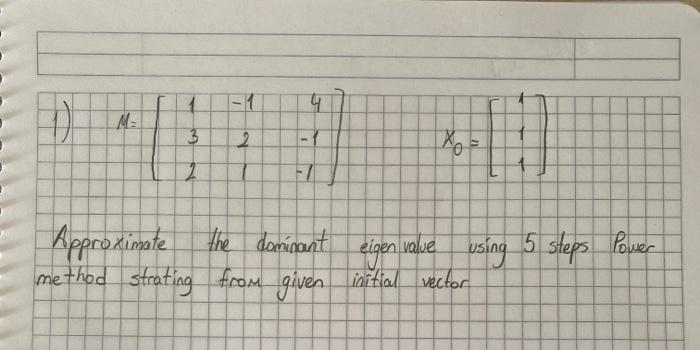 1) M= [ 1 -1 4
3 2 -1
2 1 -1 ] X0 = [ 1
1
1 ]
Approximate the dominant eigen value using 5 steps Power
method strating from given initial vector